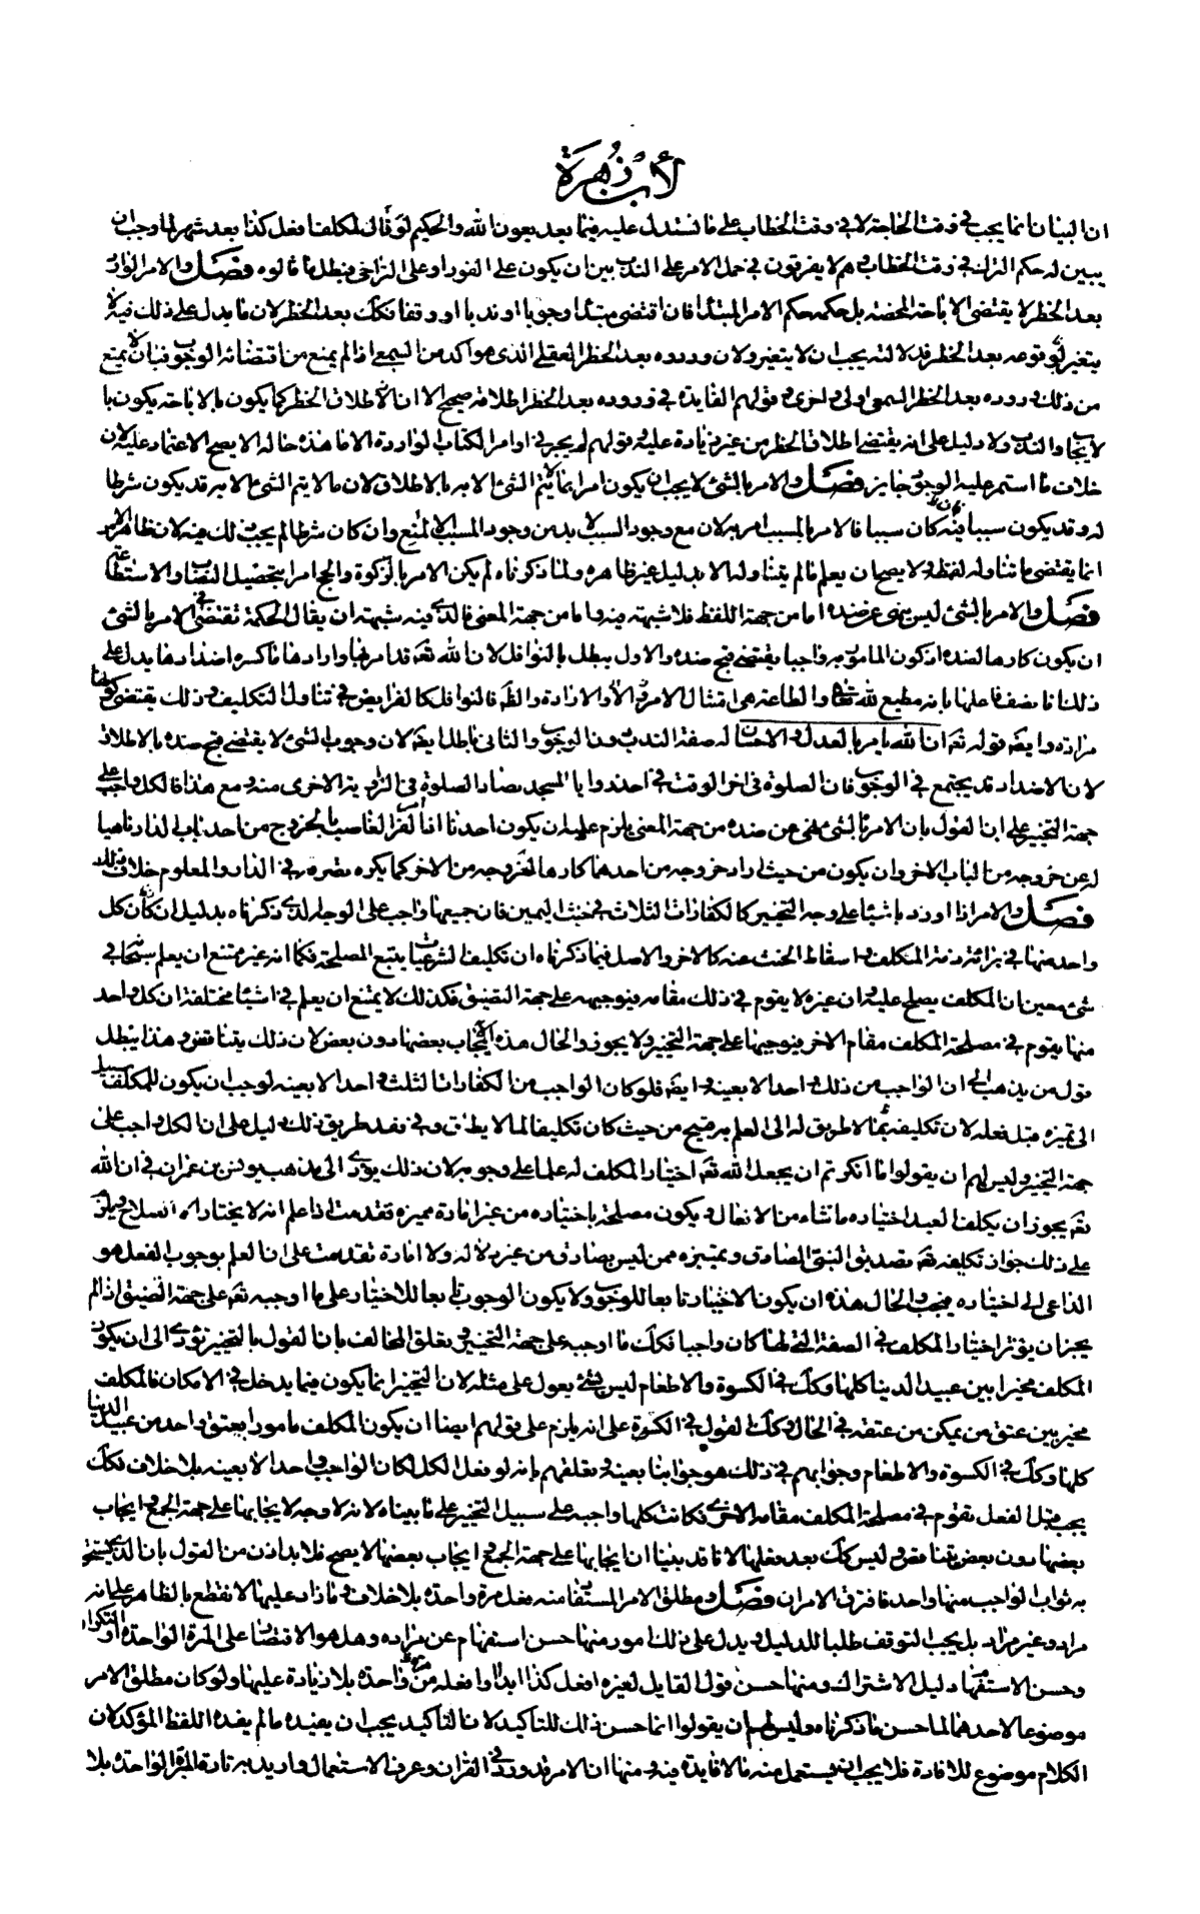 لابن زهرة
ان البيان انما يجب في وقت الحاجة لا في وقت الخطاب على ما نستدل عليه فيما بعد بعون الله والحكيم لو قال لمكلف افعل كذا بعد شهر لما وجب ان
يبين له حكم الترك في وقت الخطاب وهم لا يفرقون في حمل الامر على الندب بين ان يكون على الفور او على التراخي فبطل ما قالوه فصل والامر الوارد
بعد الحظر لا يقتضى الاباحة المحضة بل حكمه حكم الامر المبتدأ فان اقتضى مبتدا وجوبا او ندبا او وقفا فكك بعد الحظر لان ما يدل على ذلك فيه لا
يتغير بوقوعه بعد الحظر فدلالته يجب ان لا يتغير ولان وروده بعد الحظر العقلي الذى هو اكد من السمع اذا لم يمنع من اقتضائه الوجوب فبان لا يمنع
من ذلك وروده بعد الحظر السمعى اولى واحرى وقولهم الفايدة في وروده بعد الحظر اطلاقه صحيح الا ان الاطلاق الحظر كما يكون بالاباحة يكون با
لايجاب والندب ولا دليل على انه يقتضى اطلاق الحظر من غير زيادة عليه وقولهم لم يجر في اوامر الكتاب الواردة الا ما هذه حاله لا يصح الاعتماد عليه لان
خلاف ما استمر عليه الوجود جايز فصل والامر بالشئ لا يجب ان يكون امرا بما لا يتم الشئ الا به بالاطلاق لان ما لا يتم الشئ الا به قد يكون شرطا
له وقد يكون سببا فيه فان كان سببا فالامر بالمسبب امر به لان مع وجود السبب لا بد من وجود المسبب الا لمنع وان كان شرطا لم يجب ذلك فيه لان ظاهر الامر
انما يقتضى ما تناوله لفظه ولا يصح ان يعلم ما لم يتناوله الا بدليل غير ظاهره ولما ذكرناه لم يكن الامر بالزكوة والحج امرا بتحصيل النصاب والاستطاعة
فصل والامر بالشئ ليس بنهى عن ضده اما من جهة اللفظ فلا شبهة فيه واما من جهة المعنى فالذى فيه شبهة ان يقال الحكمة تقتضى في الامر بالشئ
ان يكون كارها لضده او كون المامور به واجبا يقتضى قبح ضده والاول يبطل بالنوافل لان الله تعه قد امر بها وارادها وما كره اضدادها يدل على
ذلك ما نصف فاعلها بانه مطيع لله تعه والطاعة هى امتثال الامر او الارادة والنهى فالنوافل كالفرايض في تناول التكليف وذلك يقتضى كونها
مرادة وايضه قوله تعه ان الله يأمر بالعدل والاحسان له صفة الندب دون الوجوب والثاني باطل ايضه لان وجوب الشئ لا يقتضى قبح ضده بالاطلاق
لان الاضداد قد يجتمع في الوجوب فان الصلوة في اخر الوقت في احد زوايا المسجد يضاد الصلوة في الزاوية الاخرى منه ومع هذا فالكل واجب على
جهة التخيير على ان القول بان الامر بالشئ نهى عن ضده من جهة المعنى يلزم عليه ان يكون احدنا اذا امر الغاصب بالخروج من احد بابى الدار ناهيا
له عن خروجه من الباب الاخر وان يكون من حيث اراد خروجه من احدهما كارها لخروجه من الاخر كما يكره تصرفه في الدار والمعلوم خلاف ذلك
فصل والامر اذا اورد باشياء على وجه التخيير كالكفارات الثلاث في حنث اليمين فان جميعها واجب على الوجه الذى ذكرناه بدليل ان كان كل
واحد منها في براءة ذمة المكلف واسقاط الحنث عنه كالاخر والاصل فيما ذكرناه ان تكليف الشرعيات يتبع المصلحة فكما انه غير ممتنع ان يعلم سبحانه في
شئ معين ان المكلف يصلح عليه وان غيره لا يقوم في ذلك مقامه فيوجبه على جهة التضيق فكذلك لا يمتنع ان يعلم في اشياء مختلفة ان كل واحد
منها يقوم في مصلحة المكلف مقام الاخر فيوجبها على جهة التخيير ولا يجوز والحال هذه ايجاب بعضها دون بعض لان ذلك يتناقض وهذا يبطل
قول من يذهب الى ان الواجب من ذلك واحد لا بعينه وايضه فلو كان الواجب من الكفارات الثلث واحدا لا بعينه لوجب ان يكون للمكلف سبيل
الى تميزه قبل فعله لان تكليفه بما لا طريق له الى العلم به قبيح من حيث كان تكليفا لما لا يطاق وفي فقد طريق ذلك دليل على ان الكل واجب على
جهة التخيير وليس لهم ان يقولوا ما انكرتم ان يجعل الله تعه اختيار المكلف له علما على وجوبه لان ذلك يؤدى الى مذهب يونس بن عمران في ان الله
تعه يجوز ان يكلف العبد اختياره ما شاء من الافعال ويكون مصلحة باختياره من غير امارة مميزة تقدمت اذا علم انه لا يختار الا الصلاح ويلزم
على ذلك جواز تكليفه تعه تصديق النبي الصادق وتمييزه ممن ليس بصادق من غير دلالة ولا امارة تقدمت على ان العلم بوجوب الفعل هو
الداعى الى اختياره فيجب والحال هذه ان يكون الاختيار تابعا للوجوب ولا يكون الوجوب تابعا للاختيار على ما اوجبه تعه على جهة التضيق اذا لم
يجز ان يؤثر اختيار المكلف في الصفة التي لها كان واجبا فكك ما اوجبه على جهة التخيير وتعلق المخالف بان القول بالتخيير يؤدى الى ان يكون
المكلف مخيرا بين عبيد الدنيا كلها وكك في الكسوة والاطعام ليس بشئ يعول على مثله لان التخيير انما يكون فيما يدخل في الامكان فالمكلف
مخير بين عتق من يمكن من عتقه في الحال وكك القول في الكسوة على انه يلزم على قولهم ايضا ان يكون المكلف مامورا بعتق واحد من عبيد الدنيا
كلها وكك في الكسوة والاطعام وجوابهم في ذلك هو جوابنا بعينه وتعلقهم بانه لو فعل الكل لكان الواجب واحدا لا بعينه بلا خلاف فكك
يجب قبل الفعل تقوم في مصلحة المكلف مقام الاخرى فكانت كلها واجبة على سبيل التخيير على ما بيناه لانه لا وجه لايجابها على جهة الجمع وايجاب
بعضها دون بعض يتناقض وليس كك بعد فعلها لانا قد بينا ان ايجابها على جهة الجمع وايجاب بعضها لا يصح فلا بد اذن من القول بان الذى يستحق
به ثواب الواجب منها واحد فافترق الامران فصل ومطلق الامر المستفاد منه فعل مرة واحدة بلا خلاف وما زاد عليها لا نقطع بالظاهر على انه
مراد وغير مراد بل يجب التوقف طلبا للدليل ويدل على ذلك امور منها حسن استفهام عن مراده وهل هو الاقتصار على المرة الواحدة او التكرار
وحسن الاستفهام دليل الاشتراك ومنها حسن قول القايل لغيره افعل كذا ابدا وافعله مرة واحدة بلا زيادة عليها ولو كان مطلق الامر
موضوعا لاحدهما لما حسن ما ذكرناه وليس لهم ان يقولوا انما حسن ذلك للتأكيد لان التأكيد يجب ان يفيد ما لم يفده اللفظ المؤكد لان
الكلام موضوع للافادة فلا يجب ان يستعمل منه ما لا فايدة فيه ومنها ان الامر قد ورد في القران وعرف الاستعمال واريد به تارة المرة الواحدة بلا